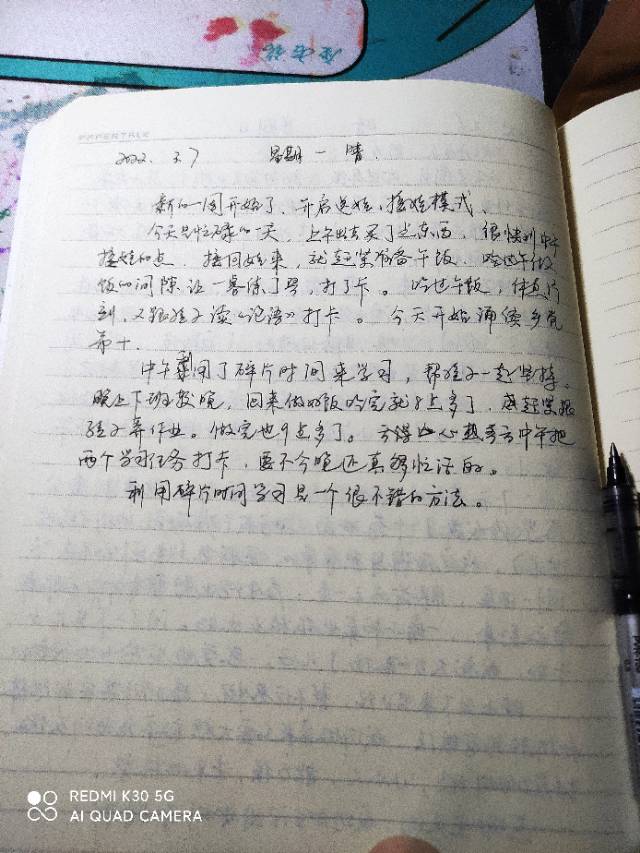 PAPERTALK
2022. 3.7 星期一 晴.
新的一周开始了、开启送娃,接娃模式、
今天是忙碌的一天,上午出去买了些东西,很快到中午
接娃的点.接回娃来,就赶紧准备午饭.吃过午饭
饭的间隙让一番练了琴,打了卡。吃过午饭,休息片
刻,又跟娃子读《论语》打卡。今天开始诵读乡党
第十.
中午利用了碎片时间来学习,帮娃子一起坚持。
晚上下班较晚,回来做好饭吃完就8点多了.感赶紧跟
娃子弄作业。做完也9点多了。亏得 中午把
两个学习任务打卡,要不今晚还真够忙活的。
利用碎片时间学习是一个很不错的方法。
REDMI K30 5G
AI QUAD CAMERA